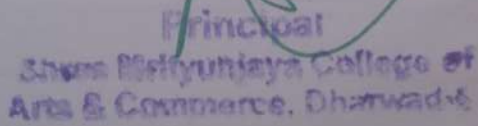 Principal
Shree Mrityunjaya College of
Arts & Commerce, Dharwad-8